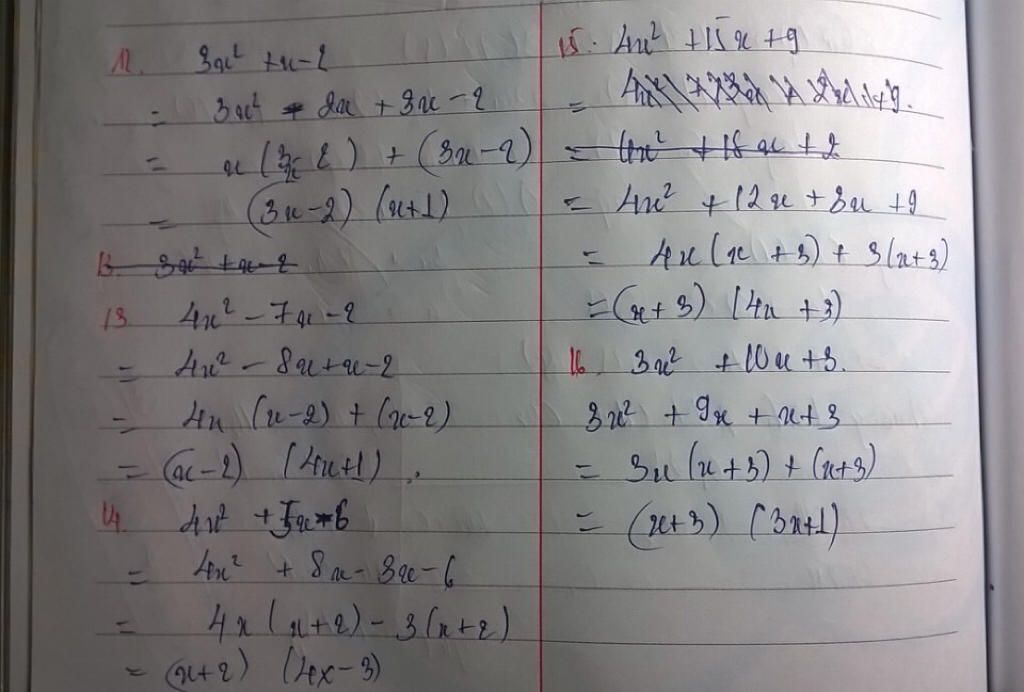 12. 3x² + x - 2
= 3x² - 2x + 3x - 2
= x(3x - 2) + (3x - 2)
= (3x - 2) (x + 1)
13. 3x² + x - 2
13. 4x² - 7x - 2
= 4x² - 8x + x - 2
= 4x (x - 2) + (x - 2)
= (x - 2) (4x + 1).
14. 4x² + 5x - 6
= 4x² + 8x - 3x - 6
= 4x (x + 2) - 3(x + 2)
= (x + 2) (4x - 3)
15. 4x² + 15x + 9
= 4x² + 9.
= 4x² + 18x + 2
= 4x² + 12x + 3x + 9
= 4x (x + 3) + 3(x + 3)
= (x + 3) (4x + 3)
16. 3x² + 10x + 3.
3x² + 9x + x + 3
= 3x (x + 3) + (x + 3)
= (x + 3) (3x + 1)